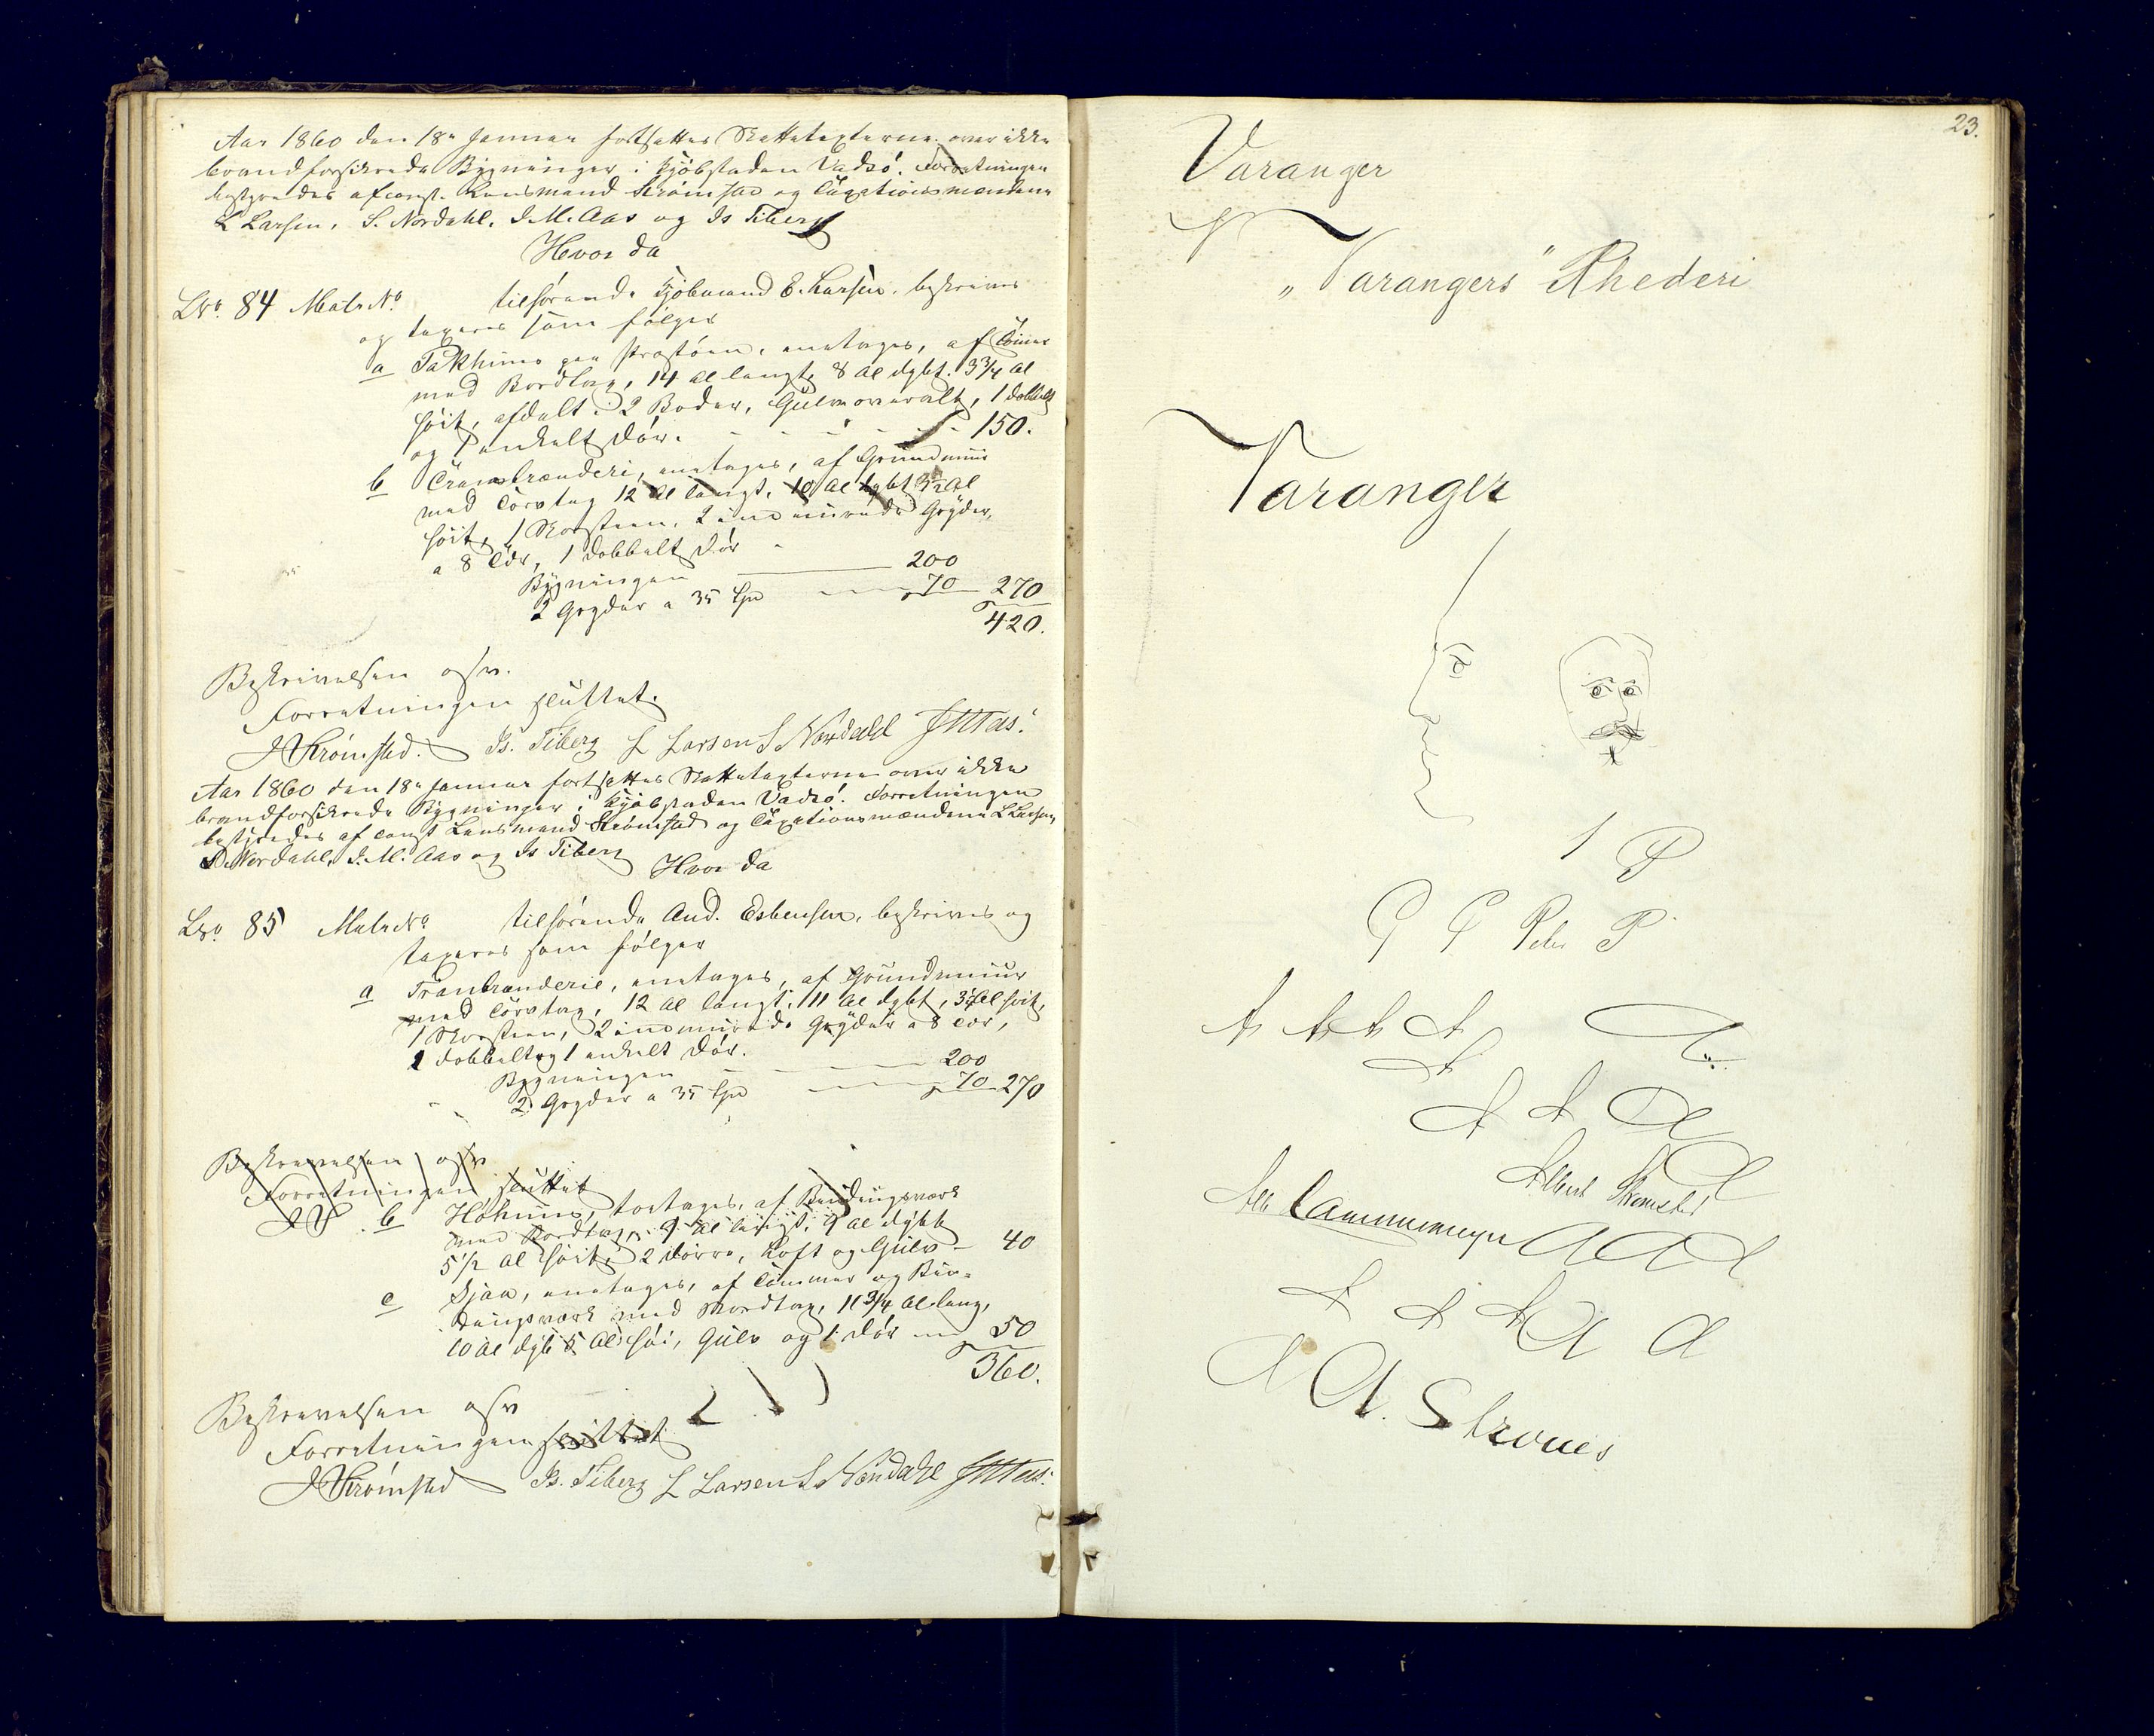 Aar 1860 den 18e Januar fortsattes Skattetaxterne over ikke
brandforsikrede Bygninger i Kjöbstaden Vadsö. Forretningen
bestyredes af const. Lensmand Strömsted og Taxationsmændene
L Larsen, S. Nordahl, I. M. Aas og Is Tiberg
Hvor da
LNo. 84 Matr No. tilhörende Kjöbmand E. Larsen, beskrives
og taxeres som følger
a Pakhuus paa, enetages, af Tömmer
med Bordtag, 14 Al langt, 8 Al dybt. 3 3/4 Al
höit, afdelt i 2 Boder, Gulv overalt, 1 dobbelt
og 1 enkelt Dör. 150.
b Tranbrænderi, enetages, af Grundmuur
med Törvtag 12 Al langt, 10 Al dybt 3 1/2 Al
höit, 1 Skorsteen, 2 indmurede Gryder,
a 8 Tdr, 1 dobbelt Dör
Bygningen 200
2 Gryder a 35 Spd 70 270
420.
Beskrivelsen osv.
Forretningen sluttet.
Strömsted. Is. Tiberg L Larsen S Nordahl IMAas.
Aar 1860 den 18e Januar fortsattes Skattetaxterne over ikke
brandforsikrede Bygninger i Kjöbstaden Vadsö. Forretningen
bestyredes af const Lensmand Strömsted og Taxationsmændene L Larsen,
S. Nordahl, I. M. Aas og Is Tiberg Hvor da
LNo. 85 Matr No. tilhörende And. Esbensen, beskrives og
taxeres som følger
a Tranbrænderie, enetages, af Grundmuur
med Törvtag, 12 Al langt, 11 Al dybt, 3 1/2 Al höit,
1 Skorsteen, 2 indmurede Gryder a 8 Tdr,
1 dobbelt og 1 enkelt Dör.
Bygningen 200
2 Gryder a 35 Spd 70 270
Beskrivelsen osv
Forretningen sluttet
b Höhuus, toetages, af Bindingsværk
med Bordtag, 9 Al langt, 9 Al dybt
5 1/2 Al höit, 2 Dörre, Loft og Gulv 40
c Sjaa, enetages, af Tömmer og Bin-
dingsværk med Bordtag, 11 3/4 Al lang,
10 Al dyb 5 Al höi, Gulv og 1 Dör 50
360.
Beskrivelsen osv
Forretningen sluttet
Strömsted Is. Tiberg L Larsen S Nordahl IMAas.
23.
Varanger
V
„Varangers" Rhederi
Varanger
1 P
P P Peter P
A A A A
A
A A A
Albert Strømsted
Cammermeyer A A A
A A A A A
A A. Strøms